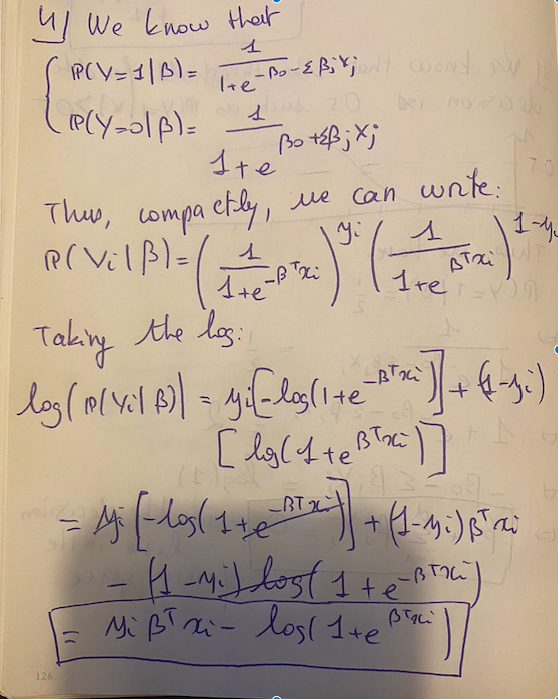 4) We know that
P(Y=1|β) = 1 / (1+e^(-β0-Σβjxj))
P(Y=0|β) = 1 / (1+e^(β0+Σβjxj))
Thus, compactly, we can write:
P(Yi|β) = (1 / (1+e^(-βᵀxi)))^yi (1 / (1+e^(βᵀxi)))^(1-yi)
Taking the log:
log(P(Yi|β)| = yi[-log(1+e^(-βᵀxi)] + (1-yi)
[log(1+e^(βᵀxi)]
= yi[-log(1+e^(-βᵀxi)] + (1-yi)βᵀxi
- (1-yi) log(1+e^(-βᵀxi))
= yi βᵀxi - log(1+e^(βᵀxi))
126